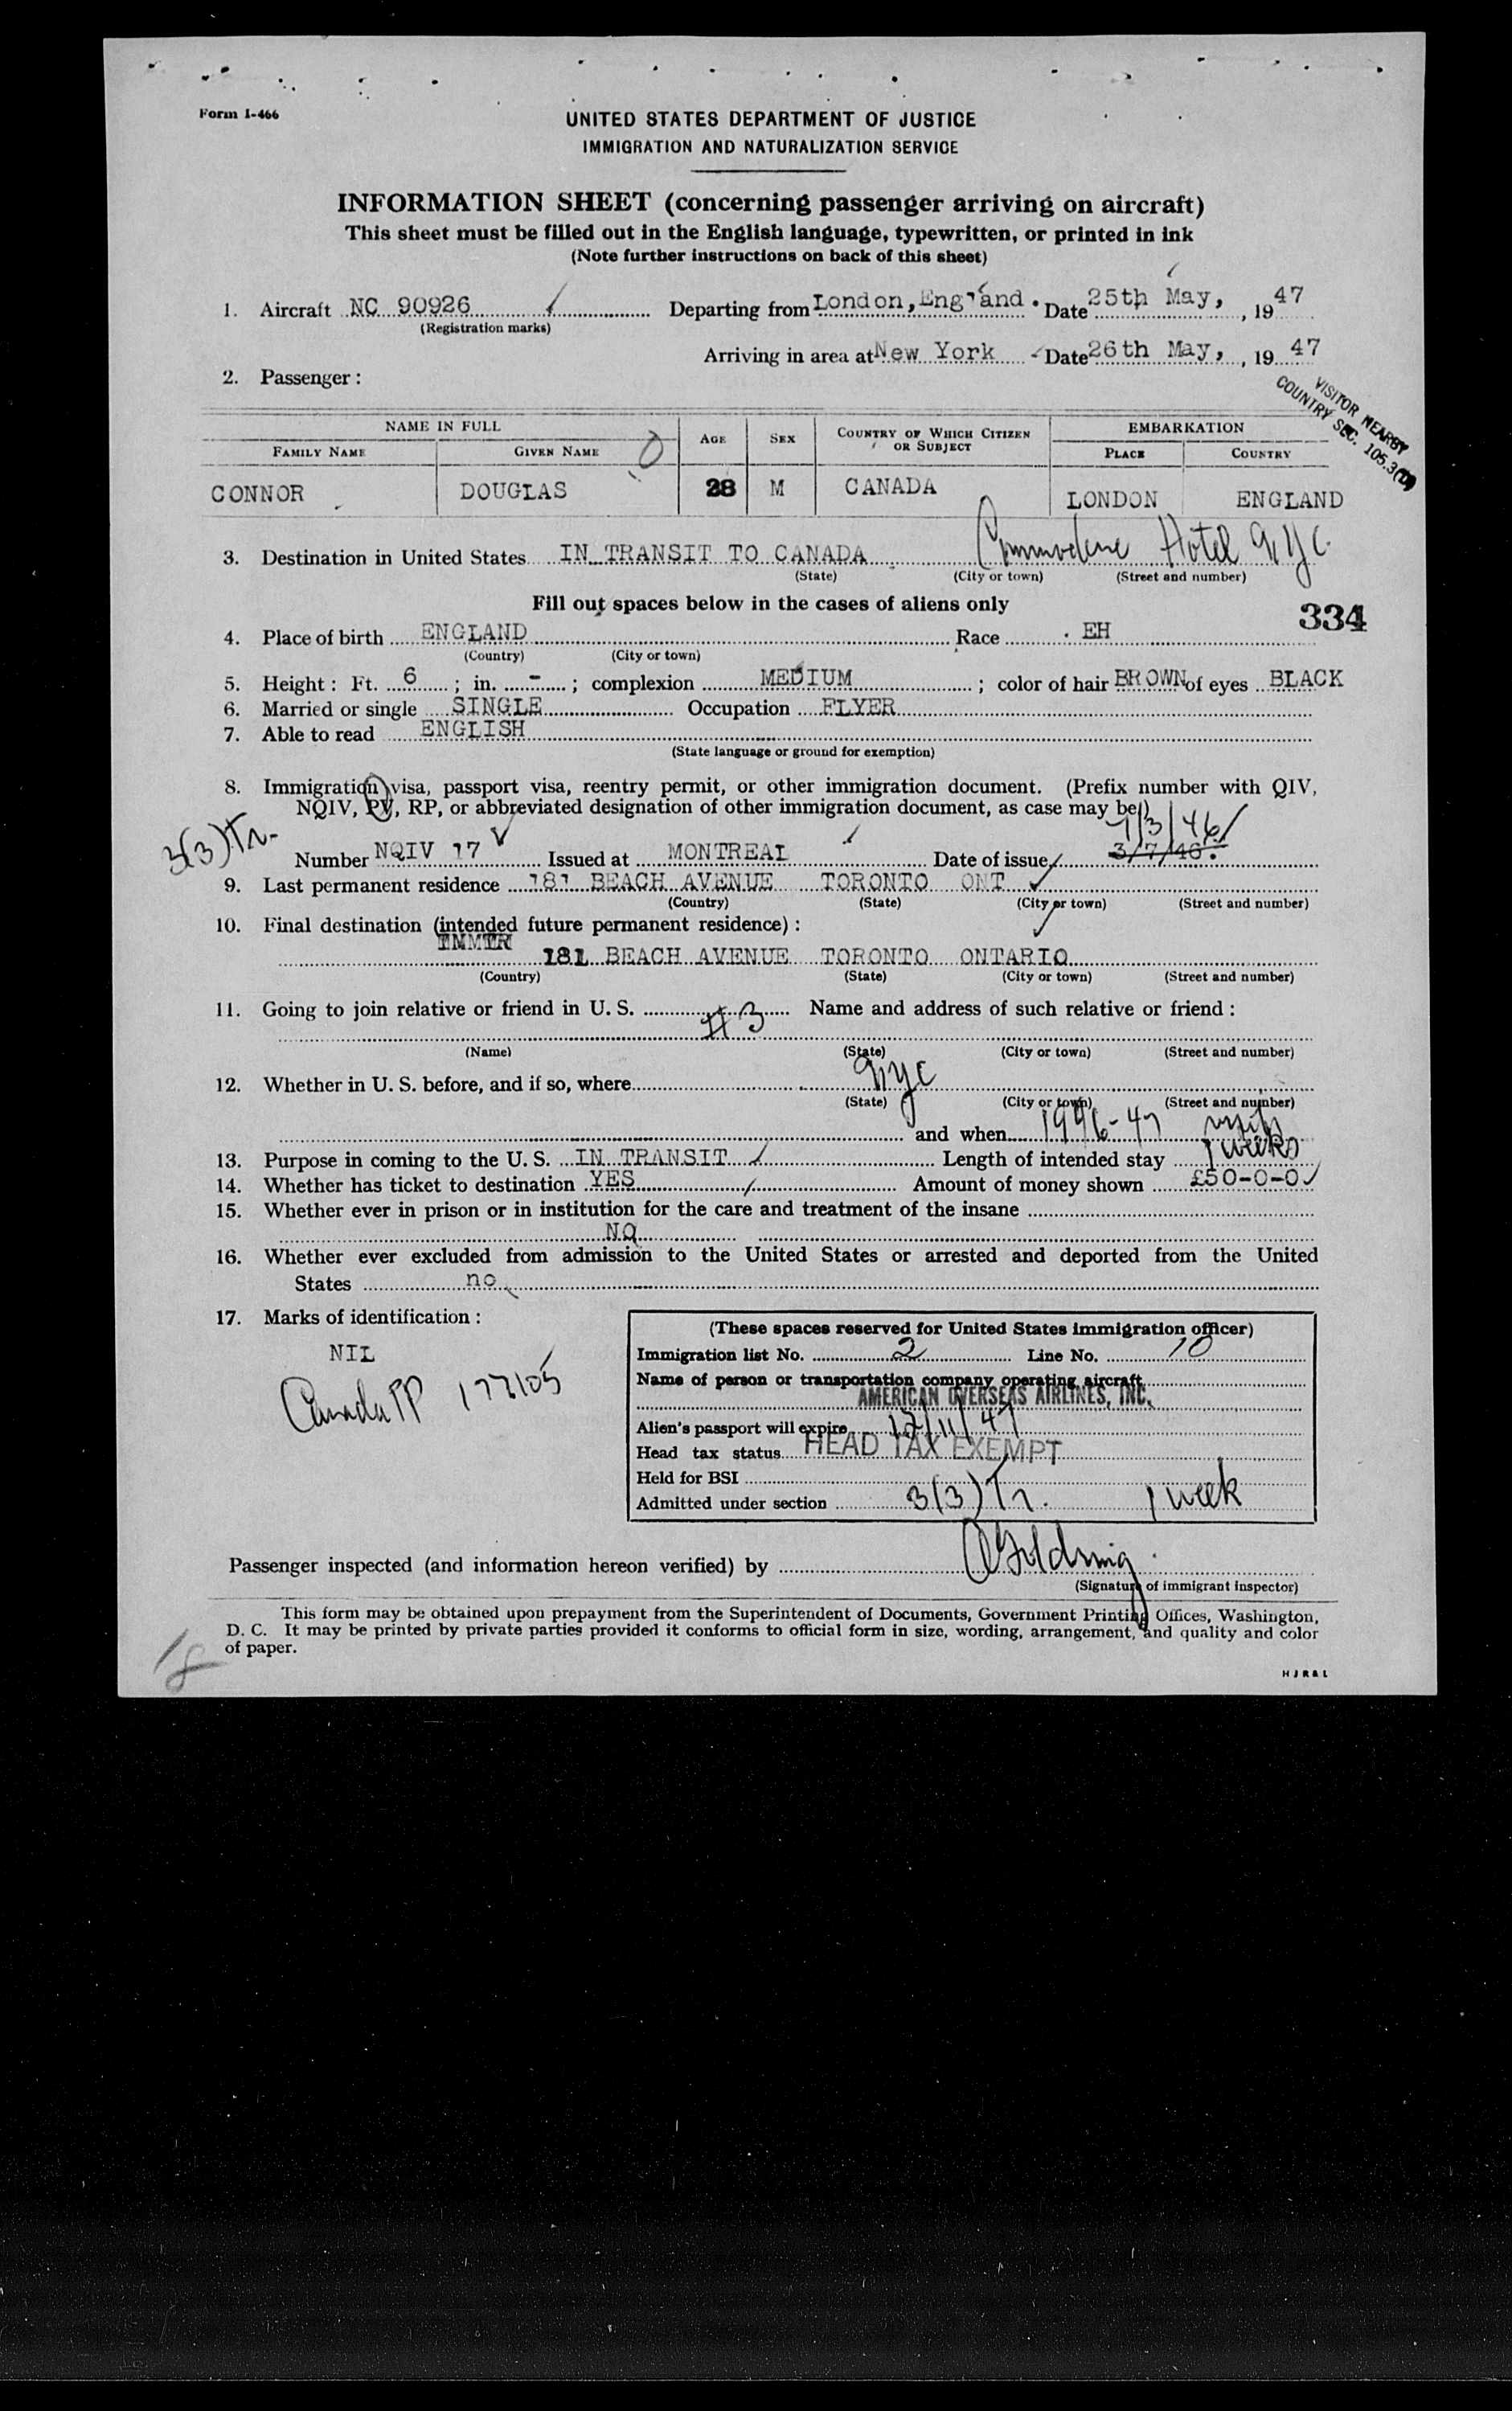 Form I-466
UNITED STATES DEPARTMENT OF JUSTICE
IMMIGRATION AND NATURALIZATION SERVICE
INFORMATION SHEET (concerning passenger arriving on aircraft)
This sheet must be filled out in the English language, typewritten, or printed in ink
(Note further instructions on back of this sheet)
1. Aircraft NC 90926 Departing from London, England. Date 25th May, , 19 47
(Registration marks)
Arriving in area at New York Date 26th May, , 19 47
2. Passenger:
VISITOR NEARBY
COUNTRY SEC. 105.3
NAME IN FULL AGE SEX COUNTRY OF WHICH CITIZEN OR SUBJECT EMBARKATION
FAMILY NAME GIVEN NAME PLACE COUNTRY
CONNOR DOUGLAS 28 M CANADA LONDON ENGLAND
3. Destination in United States IN TRANSIT TO CANADA Commodore Hotel NYC.
(State) (City or town) (Street and number)
Fill out spaces below in the cases of aliens only
334
4. Place of birth ENGLAND Race . EH
(Country) (City or town)
5. Height: Ft. 6 ; in. - ; complexion MEDIUM ; color of hair BROWN of eyes BLACK
6. Married or single SINGLE Occupation FLYER
7. Able to read ENGLISH
(State language or ground for exemption)
8. Immigration visa, passport visa, reentry permit, or other immigration document. (Prefix number with QIV,
NQIV, PV, RP, or abbreviated designation of other immigration document, as case may be)
3(3)Tr. 7/3/46
Number NQIV 17 Issued at MONTREAL Date of issue 3/7/46.
9. Last permanent residence 181 BEACH AVENUE TORONTO ONT
(Country) (State) (City or town) (Street and number)
10. Final destination (intended future permanent residence):
181 BEACH AVENUE TORONTO ONTARIO
(Country) (State) (City or town) (Street and number)
11. Going to join relative or friend in U. S. #3 Name and address of such relative or friend:
(Name) (State) (City or town) (Street and number)
12. Whether in U. S. before, and if so, where NYC
(State) (City or town) (Street and number)
and when 1946-47
13. Purpose in coming to the U. S. IN TRANSIT Length of intended stay 1 week
14. Whether has ticket to destination YES Amount of money shown £50-0-0
15. Whether ever in prison or in institution for the care and treatment of the insane
NO
16. Whether ever excluded from admission to the United States or arrested and deported from the United
States no
17. Marks of identification:
NIL
Canada PP 177105
(These spaces reserved for United States immigration officer)
Immigration list No. 2 Line No. 10
Name of person or transportation company operating aircraft
AMERICAN OVERSEAS AIRLINES, INC.
Alien's passport will expire 12/11/47
Head tax status HEAD TAX EXEMPT
Held for BSI
Admitted under section 3(3)Tr. 1 week
Passenger inspected (and information hereon verified) by
(Signature of immigrant inspector)
This form may be obtained upon prepayment from the Superintendent of Documents, Government Printing Offices, Washington,
D. C. It may be printed by private parties provided it conforms to official form in size, wording, arrangement, and quality and color
of paper.
18
H J R & L